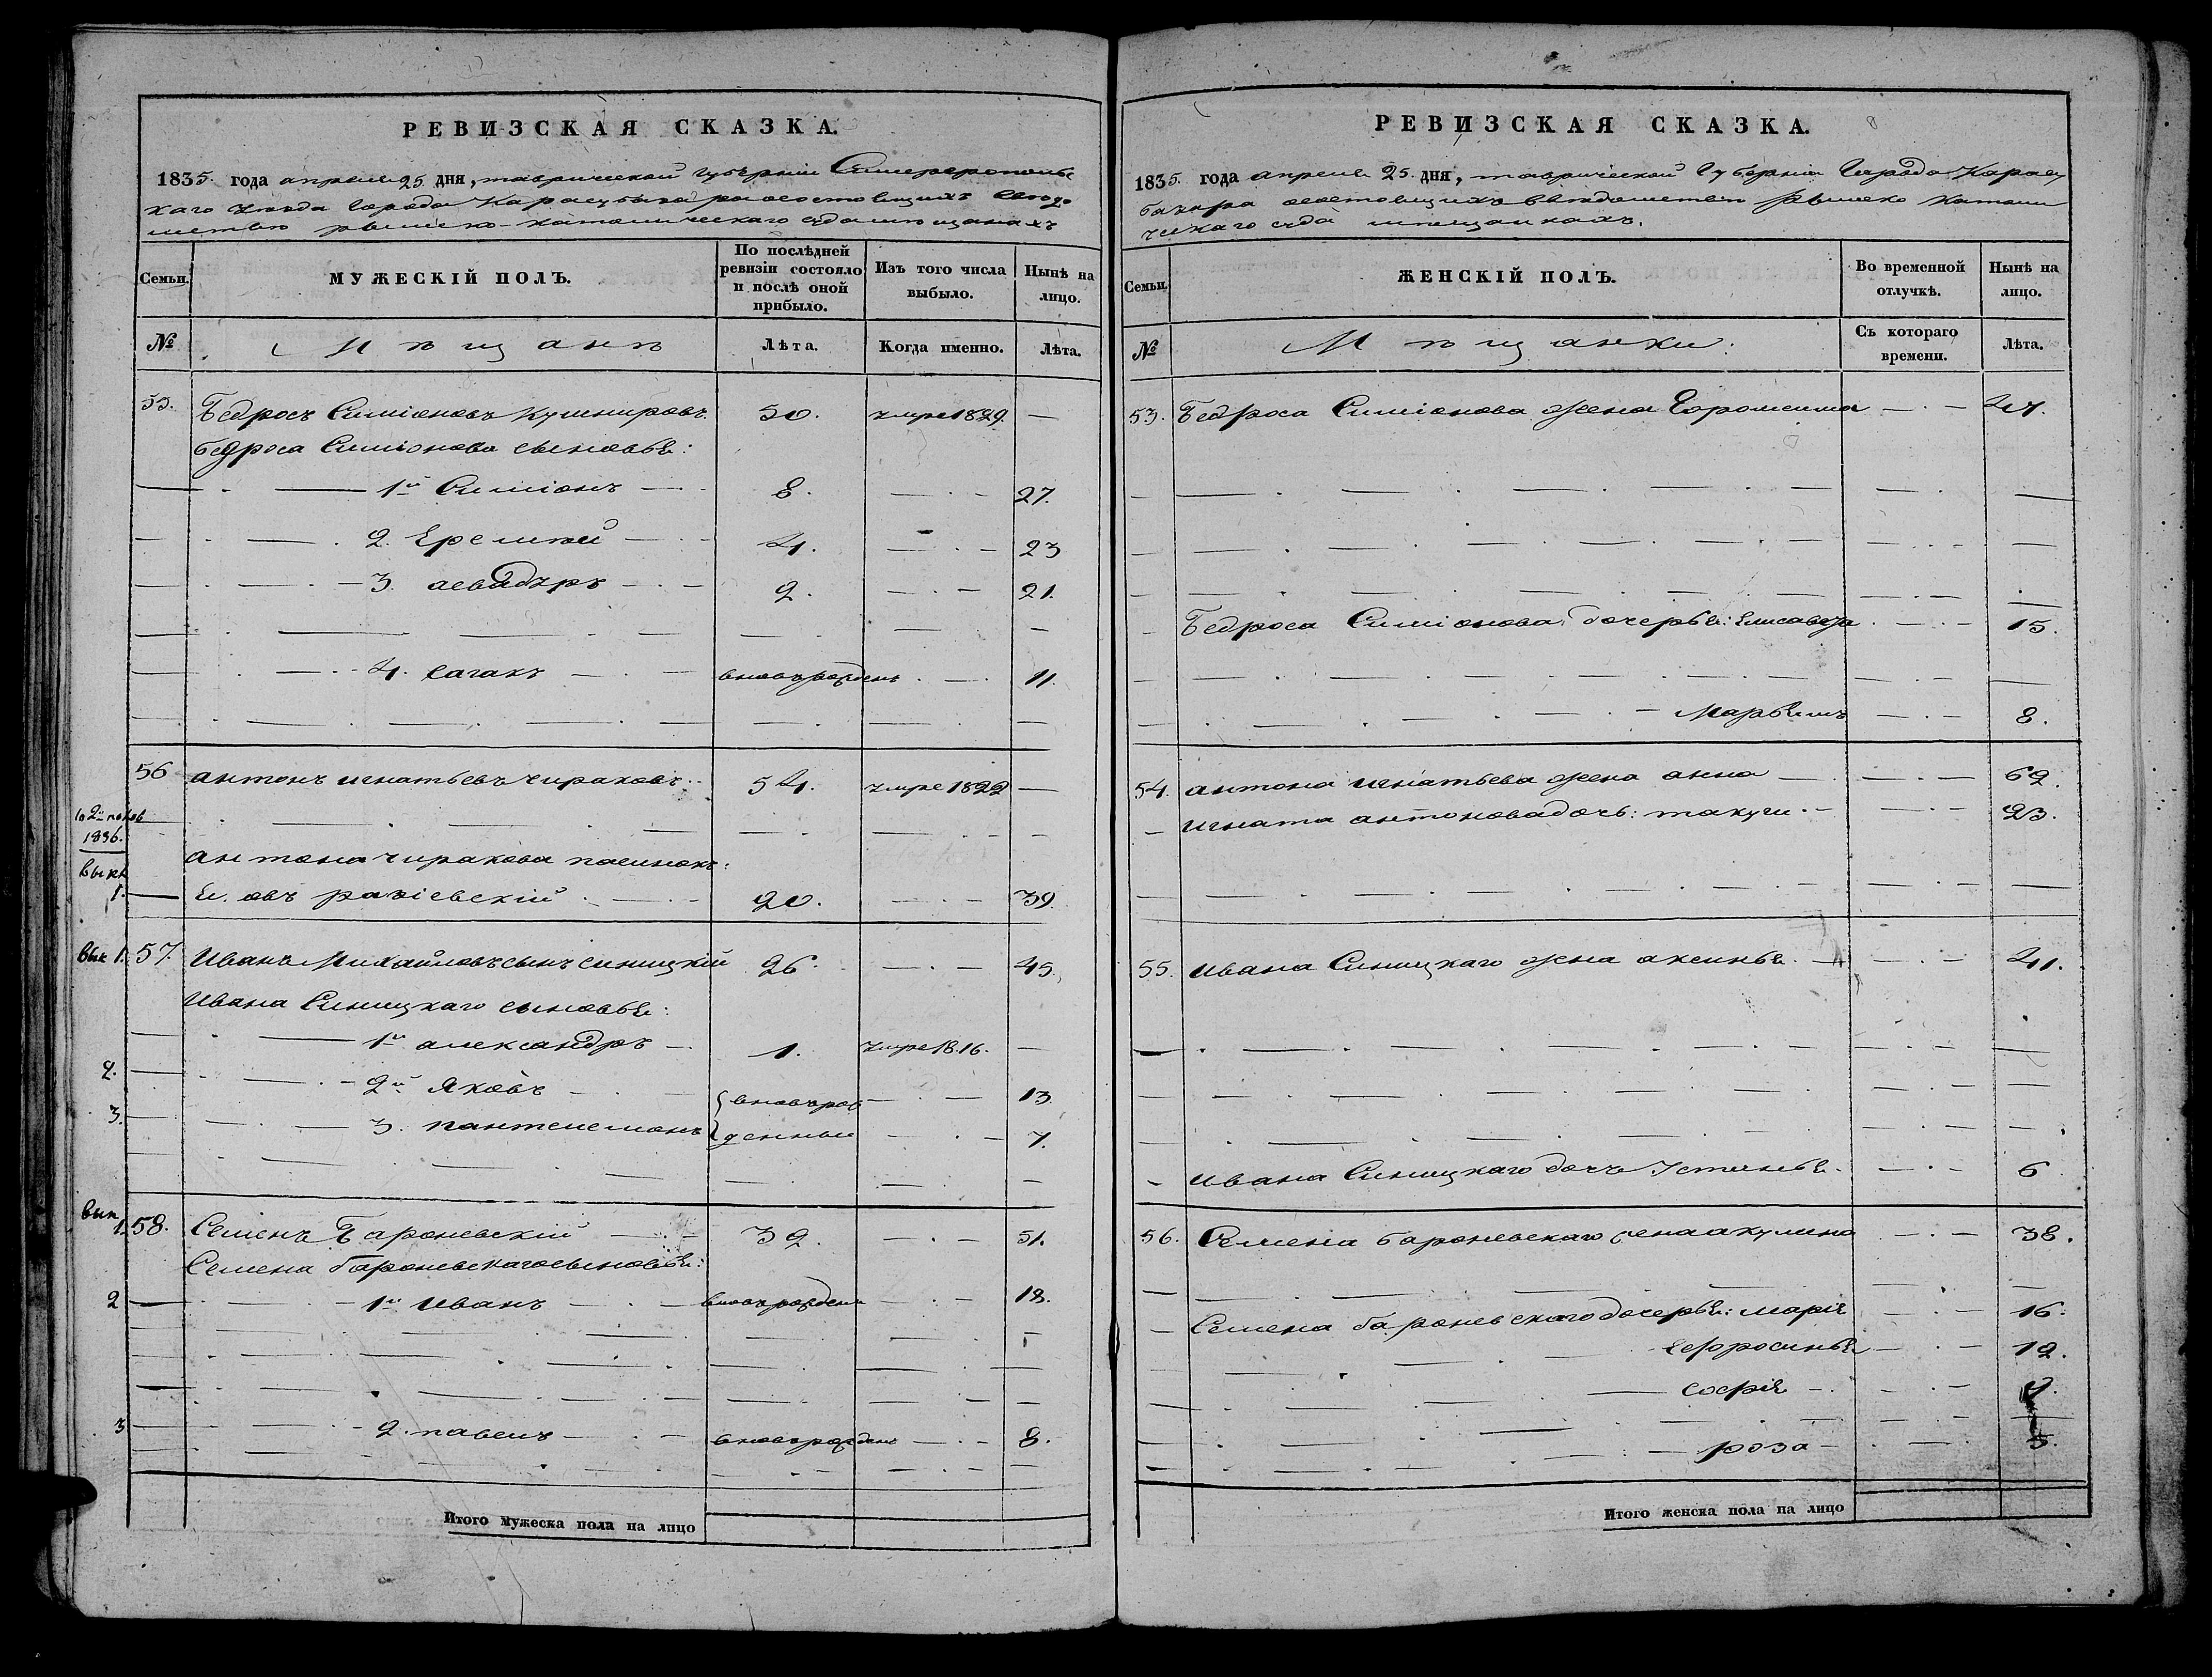 РЕВИЗСКАЯ СКАЗКА.
1835. года апреля 25. дня, таврической губерніи Симферополь
скаго уезда города Карасубазара состоящихъ
римско-католическаго суда мещанахъ
Семьи.
МУЖЕСКІЙ ПОЛЪ.
По послѣдней ревизіи состояло и послѣ оной прибыло.
Изъ того числа выбыло.
Нынѣ на лицо.
№
Мещане
Лѣта.
Когда именно.
Лѣта.
55. Бедросъ Симіоновъ Кушнировъ. 50. умре 1829. —
Бедроса Симіонова сыновья:
1й Симіонъ 8. 27.
2. Еремей 4. 23
3. 2. 21.
4. сагакъ вновьрожденъ 11.
56 антонъ игнатьевъ чираковъ. 54. умре 1822 —
1836.
антона чиракова пасинокъ:
1. 20. 39.
57. Иванъ Михайловъ сынъ синицкій 26. 45.
Ивана Синицкаго сыновья:
1й александръ 1. умре 1816. —
2. 2й Яковъ вновьрож 13
3. 3. пантелемонъ денныи 7.
1. 58. Семенъ Бароневскій 32. 51.
Семена бароневскаго сыновья:
2 1й Иванъ вновьрожденъ 18.
3 2. павелъ вновьрожденъ 8.
Итого мужеска пола на лицо
РЕВИЗСКАЯ СКАЗКА.
1835. года апреля 25. дня, таврической Губерніи Города Карасу
базара состоящихъ въ ведомстве римско католи
ческаго суда мещанкахъ.
Семьи.
ЖЕНСКІЙ ПОЛЪ.
Во временной отлучкѣ.
Нынѣ на лицо.
№
Мещанки:
Съ котораго времени.
Лѣта.
53. Бедроса Симіонова жена 47.
Бедроса Симіонова дочерья: Елисавета 15.
Марьямъ 8.
54. антона игнатьева жена анна 62.
игната антонова дочь: такуги 23.
55. Ивана Синицкаго жена аксинья 41.
Ивана Синицкаго дочь Устинья 6
56. Семена бароневскаго жена акулина 38.
Семена бароневскаго дочерья: марія 16.
Ефросинья 12.
софія
роза 5.
Итого женска пола на лицо